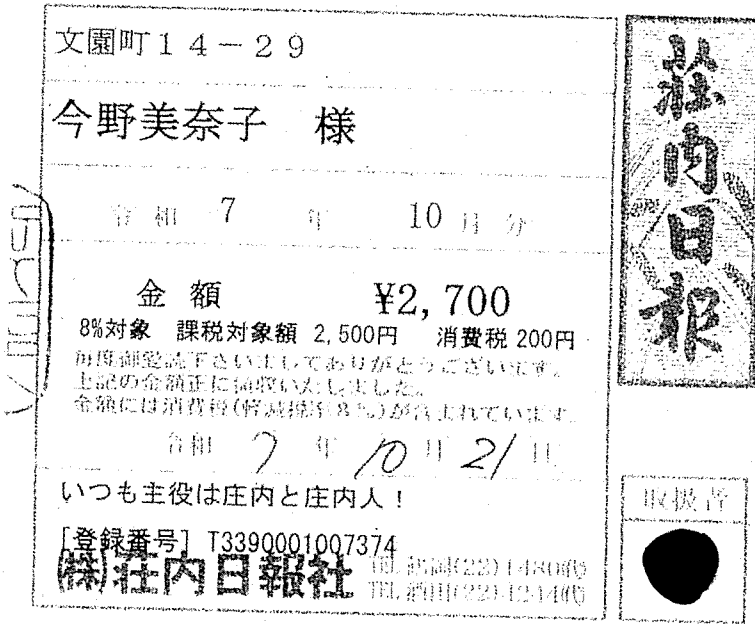 文園町14-29
今野美奈子 様
令和 7 年 10 月分
金額 ¥2,700
8%対象 課税対象額 2,500円 消費税 200円
毎度御愛読下さいましてありがとうございます。
上記の金額正に領収いたしました。
金額には消費税(軽減税率8%)が含まれています。
令和 7 年 10 月 21 日
いつも主役は庄内と庄内人!
[登録番号] T3390001007374
㈱荘内日報社
TEL 鶴岡(22)1480㈹
TEL 酒田(22)1244㈹
荘内日報
取扱者